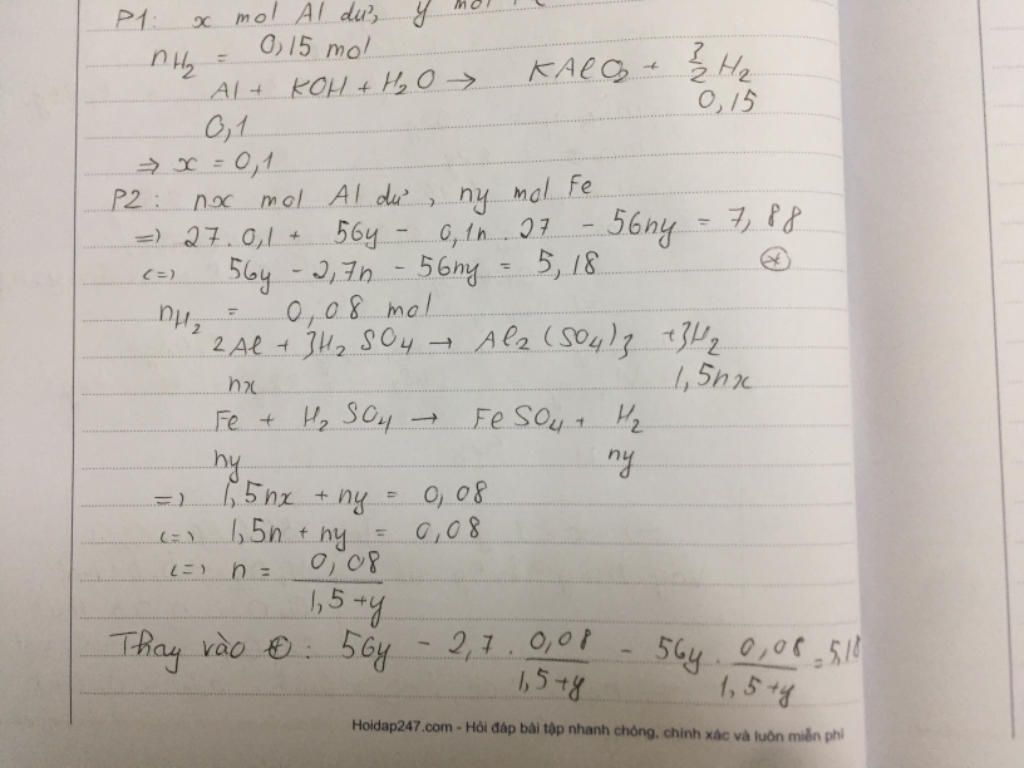 P1: x mol Al dư, y mol
nH2 = 0,15 mol
Al + KOH + H2O → KAlO2 + 3/2 H2
0,1 0,15
⇒ x = 0,1
P2: nx mol Al dư, ny mol Fe
=) 27.0,1 + 56y - 0,1n.27 - 56ny = 7,88
(=) 56y - 2,7n - 56ny = 5,18 (*)
nH2 = 0,08 mol
2Al + 3H2SO4 → Al2(SO4)3 + 3H2
nx 1,5nx
Fe + H2SO4 → FeSO4 + H2
ny ny
=) 1,5nx + ny = 0,08
(=) 1,5n + ny = 0,08
(=) n = 0,08 / 1,5+y
Thay vào (*): 56y - 2,7 . 0,08 / 1,5+y - 56y . 0,08 / 1,5+y = 5,18
Hoidap247.com - Hỏi đáp bài tập nhanh chóng, chính xác và luôn miễn phí